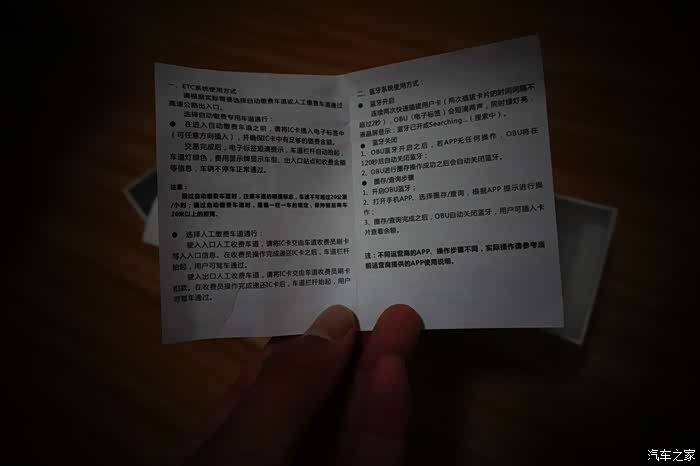 一、ETC系统使用方式：
请根据实际需要选择自动缴费车道或人工缴费车道通过
高速公路出入口。
选择自动缴费专用车道通行：
● 在进入自动缴费车道之前，请将IC卡插入电子标签中
（可任意方向插入），并确保IC卡中有足够的缴费金额。
交易完成后，电子标签短滴提示，车道栏杆自动抬起，
车道灯绿色，费用显示牌显示车型、出入口站点和收费金额
等信息，车辆不停车正常通过。
注意：
通过自动缴费车道时，注意车道的畅通标志，车速不可超过20公里
/小时；通过自动缴费车道时，遵循一栏一车的规定，保持前后两车
20米以上的距离。
● 选择人工缴费车道通行：
驶入入口人工收费车道，请将IC卡交由车道收费员刷卡
写入入口信息。在收费员操作完成递还IC卡之后，车道栏杆
抬起，用户可驾车通过。
驶入出口人工收费车道，请将IC卡交由车道收费员刷卡
扣款。在收费员操作完成递还IC卡后，车道栏杆抬起，用户
可驾车通过。
二、蓝牙系统使用方式：
● 蓝牙开启
连续两次快速插拔用户卡（两次插拔卡片的时间间隔不
超过2秒），OBU（电子标签）会短滴两声，同时绿灯亮，
液晶屏显示：蓝牙已开或Searching...（搜索中）。
● 蓝牙关闭
1、OBU蓝牙开启之后，若APP无任何操作，OBU将在
120秒后自动关闭蓝牙；
2、OBU进行圈存操作成功之后会自动关闭蓝牙。
● 圈存/查询步骤
1、开启OBU蓝牙；
2、打开手机APP，选择圈存/查询，根据APP提示进行操
作；
3、圈存/查询完成之后，OBU自动关闭蓝牙，用户可插入卡
片查看余额。
注：不同运营商的APP，操作步骤不同，实际操作请参考当
前运营商提供的APP使用说明。
汽车之家